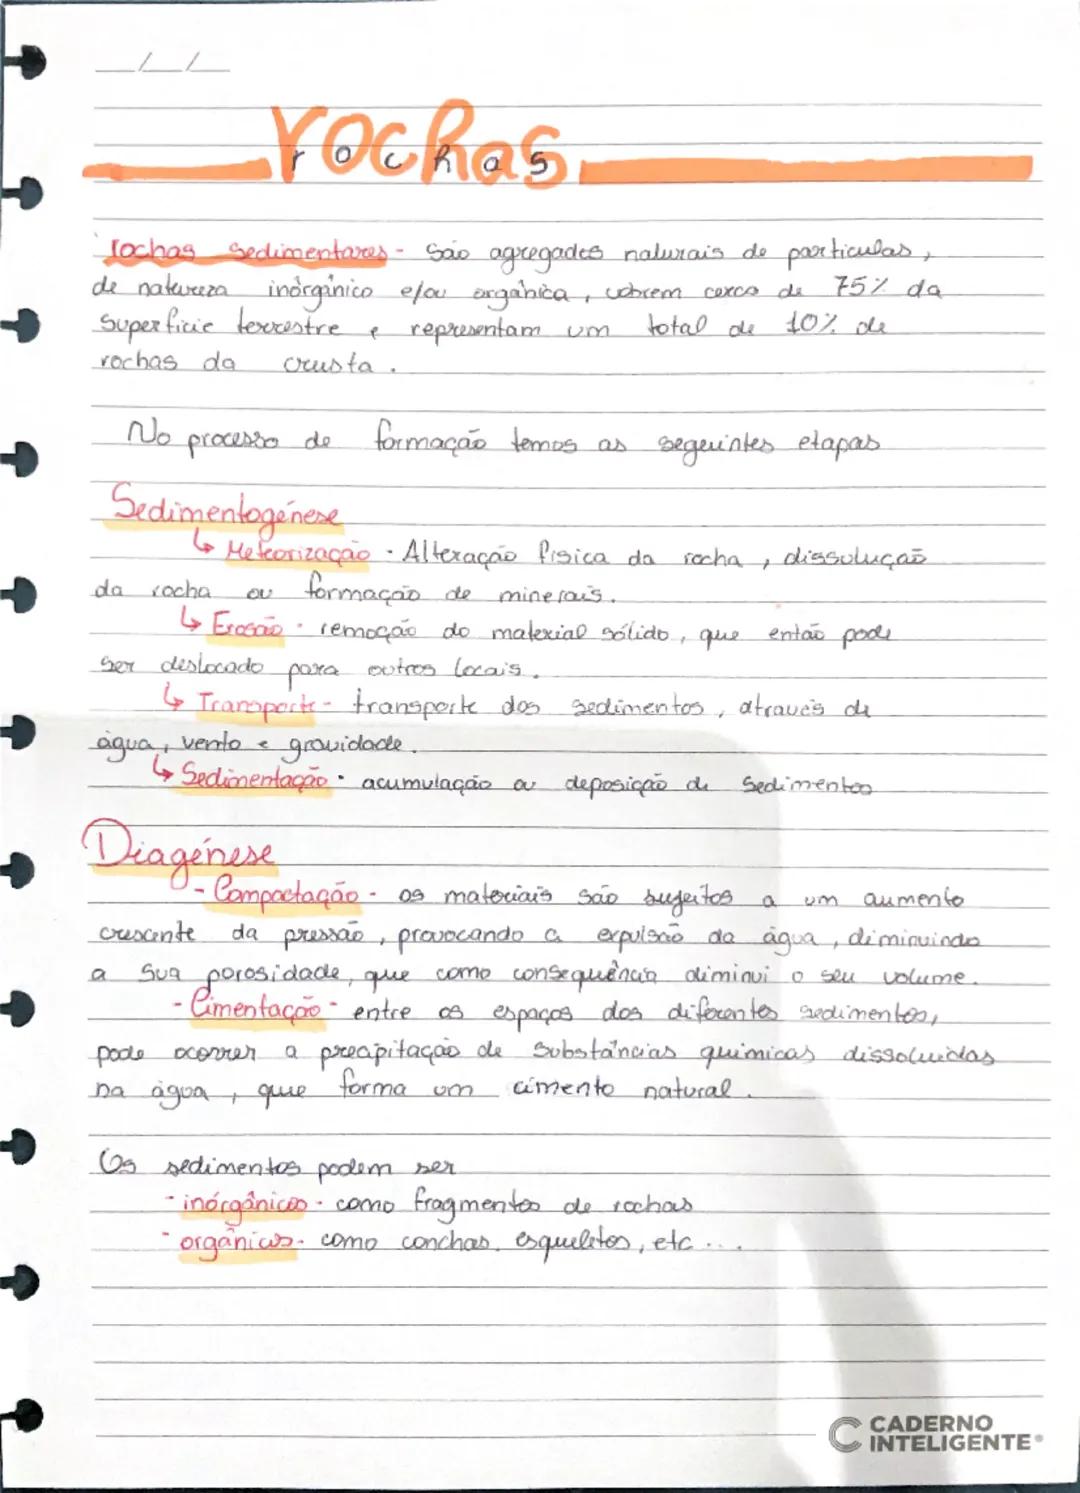 rochas
rochas
rochas sedimentares - São agregados naturais de partículas,
de natureza inórgânico e/ou orgânica, cobrem cerca de 75% da
Superfície terrestre e representam um total de 10% de
rochas da crusta.
No processo de formação temos as seguintes etapas
Sedimentogénese
↳ Meteorização - Alteração física da rocha, dissolução
da rocha ou formação de minerais.
↳ Erosão - remoção do material sólido, que então pode
ser deslocado para outros locais.
↳ Transporte - transporte dos sedimentos, através de
água, vento e gravidade.
↳ Sedimentação - acumulação ou deposição de Sedimentos
Diagénese
- Compactação - os materiais são sujeitos a um aumento
crescente da pressão, provocando a expulsão da água, diminuindo
a sua porosidade, que como consequência diminui o seu volume.
- Cimentação - entre os espaços dos diferentes sedimentos,
pode ocorrer a precipitação de substâncias químicas dissoluidas
na água, que forma um cimento natural.
Os sedimentos podem ser
- inórgânicos - como fragmentos de rochas
- orgânicos - como conchas, esqueletos, etc ...
CADERNO
INTELIGENTE®